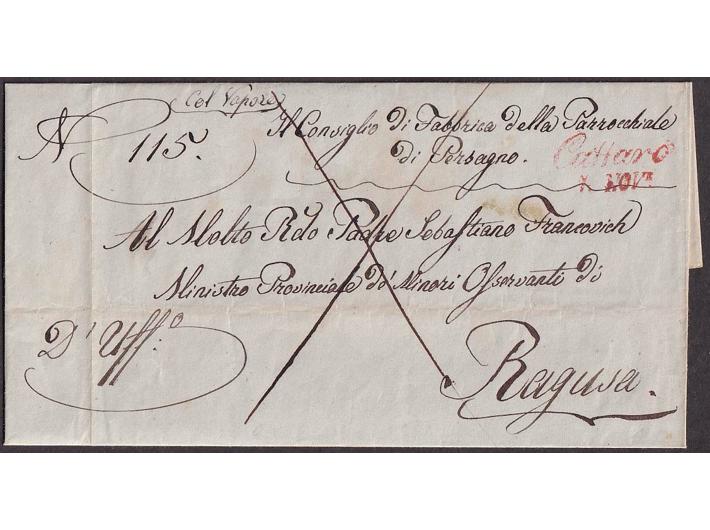 Col Vapore
N 115.
Il Consiglio di Fabbrica della Parrocchiale
di Persagno.
Cattaro
NOV
Al Molto Rdo Padre Sebastiano Francovich
Ministro Provinciale de' Minori Osservanti di
D' Uffo
Ragusa.